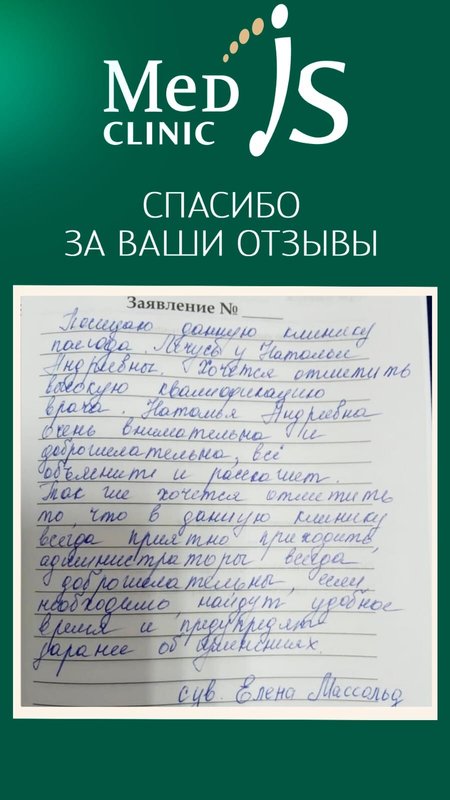 MED JS
CLINIC
СПАСИБО
ЗА ВАШИ ОТЗЫВЫ
Заявление № ____
Посещаю данную клинику
полгода. Лечусь у Натальи
Андреевны. Хочется отметить
высокую квалификацию
врача. Наталья Андреевна
очень внимательна и
доброжелательна, всё
объяснит и расскажет.
Так же хочется отметить
то, что в данную клинику
всегда приятно приходить,
администраторы всегда
доброжелательны, если
необходимо, найдут удобное
время и предупредят
заранее об изменениях.
с ув. Елена Массольд